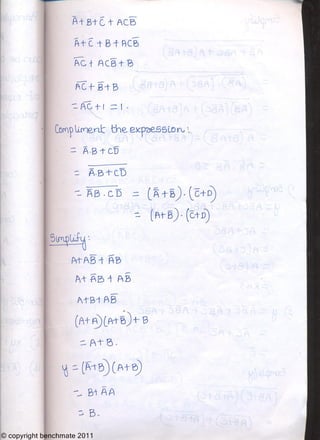 Ā+B+C̄+ACB̄
Ā+C̄+B+ACB̄
A̅C̅+ACB̄+B
A̅C̅+B̄+B
=A̅C̅+1=1.
Compliment the expression:
= A.B+CD̄
= A̅.̅B̅+̅C̅D̅
= A̅B̅.C̅D̅ = (Ā+B̄).(C̄+D)
= (A+B̄).(C̄+D)
Simplify:
A+AB̄+ĀB
A+ĀB+AB̄
A+B+AB̄
(A+A)(A+B̄)+B
=A+B.
y=(Ā+B)(A+B)
= B+ĀA
= B.
© copyright benchmate 2011